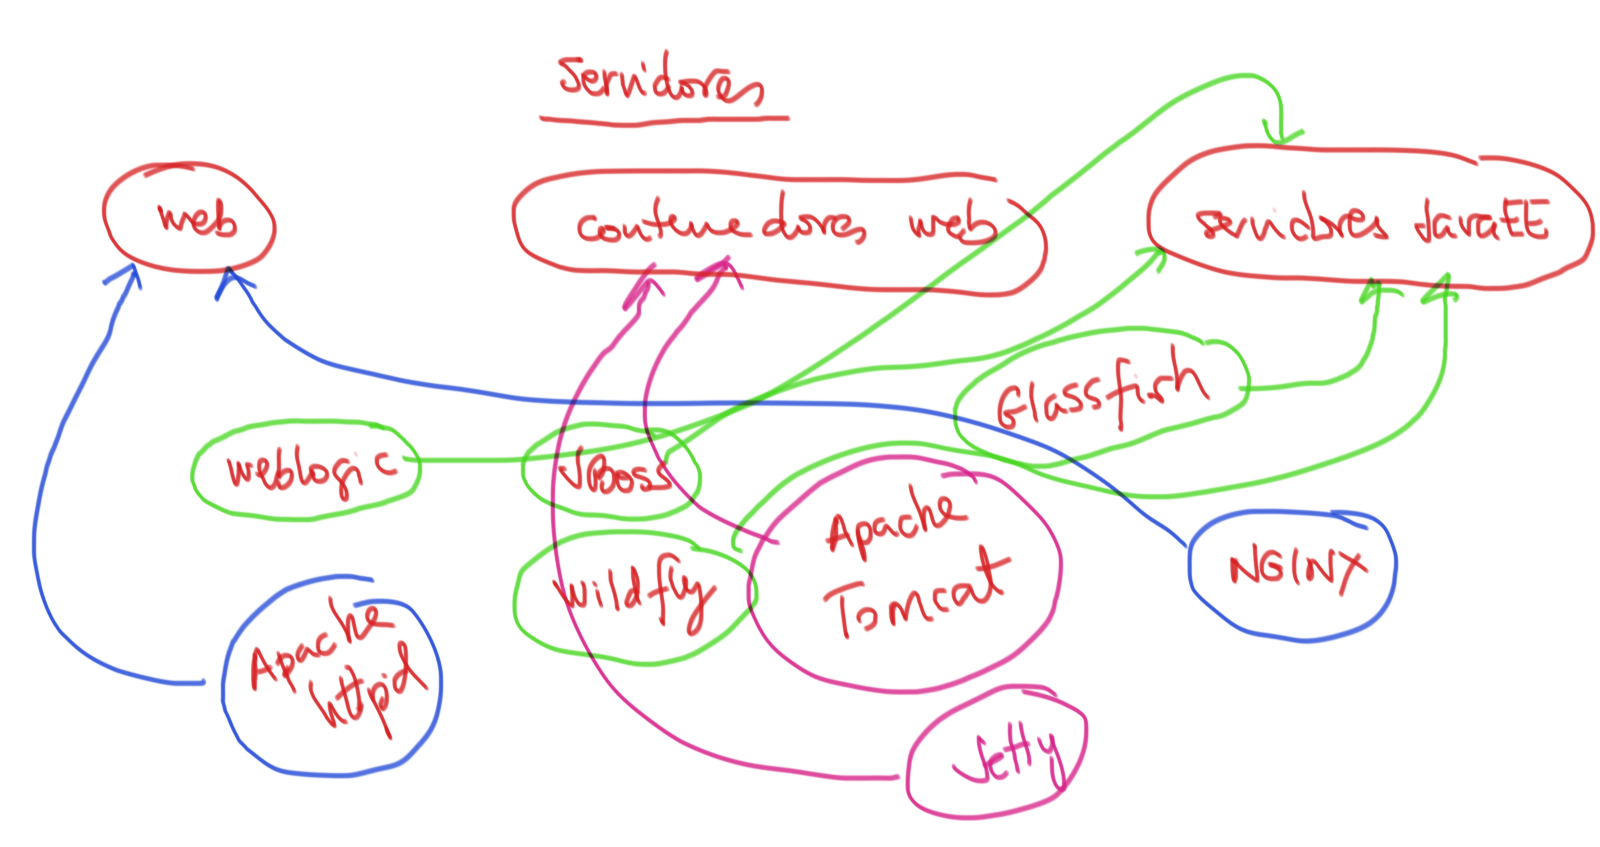 Servidores
web
contenedores web
servidores JavaEE
Glassfish
weblogic
JBoss
Apache
Tomcat
NGINX
Wildfly
Apache
httpd
Jetty